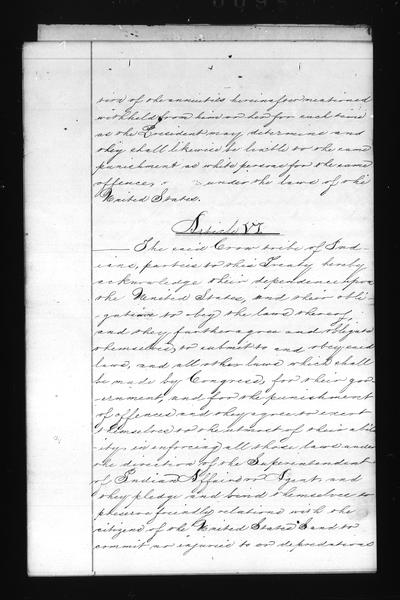 tion of the annuities hereinafter mentioned
withheld from him or her for such time
as the President may determine and
they shall likewise be liable to the same
punishment as white persons for the same
offences, under the laws of the
United States.
Article VI
The said Crow tribe of Ind-
ians, parties to this Treaty hereby
acknowledge their dependence upon
the United States, and their obli-
gation to obey the laws thereof
and they further agree and obligate
themselves, to submit to and obey said
laws, and all other laws which shall
be made by Congress, for their gov
ernment, and for the punishment
of offences and they agree to exert
themselves to the utmost of their abil
ity, in enforcing all those laws under
the direction of the Superintendent
of Indian Affairs or Agent, and
they pledge and bind themselves to
preserve friendly relations with the
citizens of the United States and to
commit no injuries to or depredations